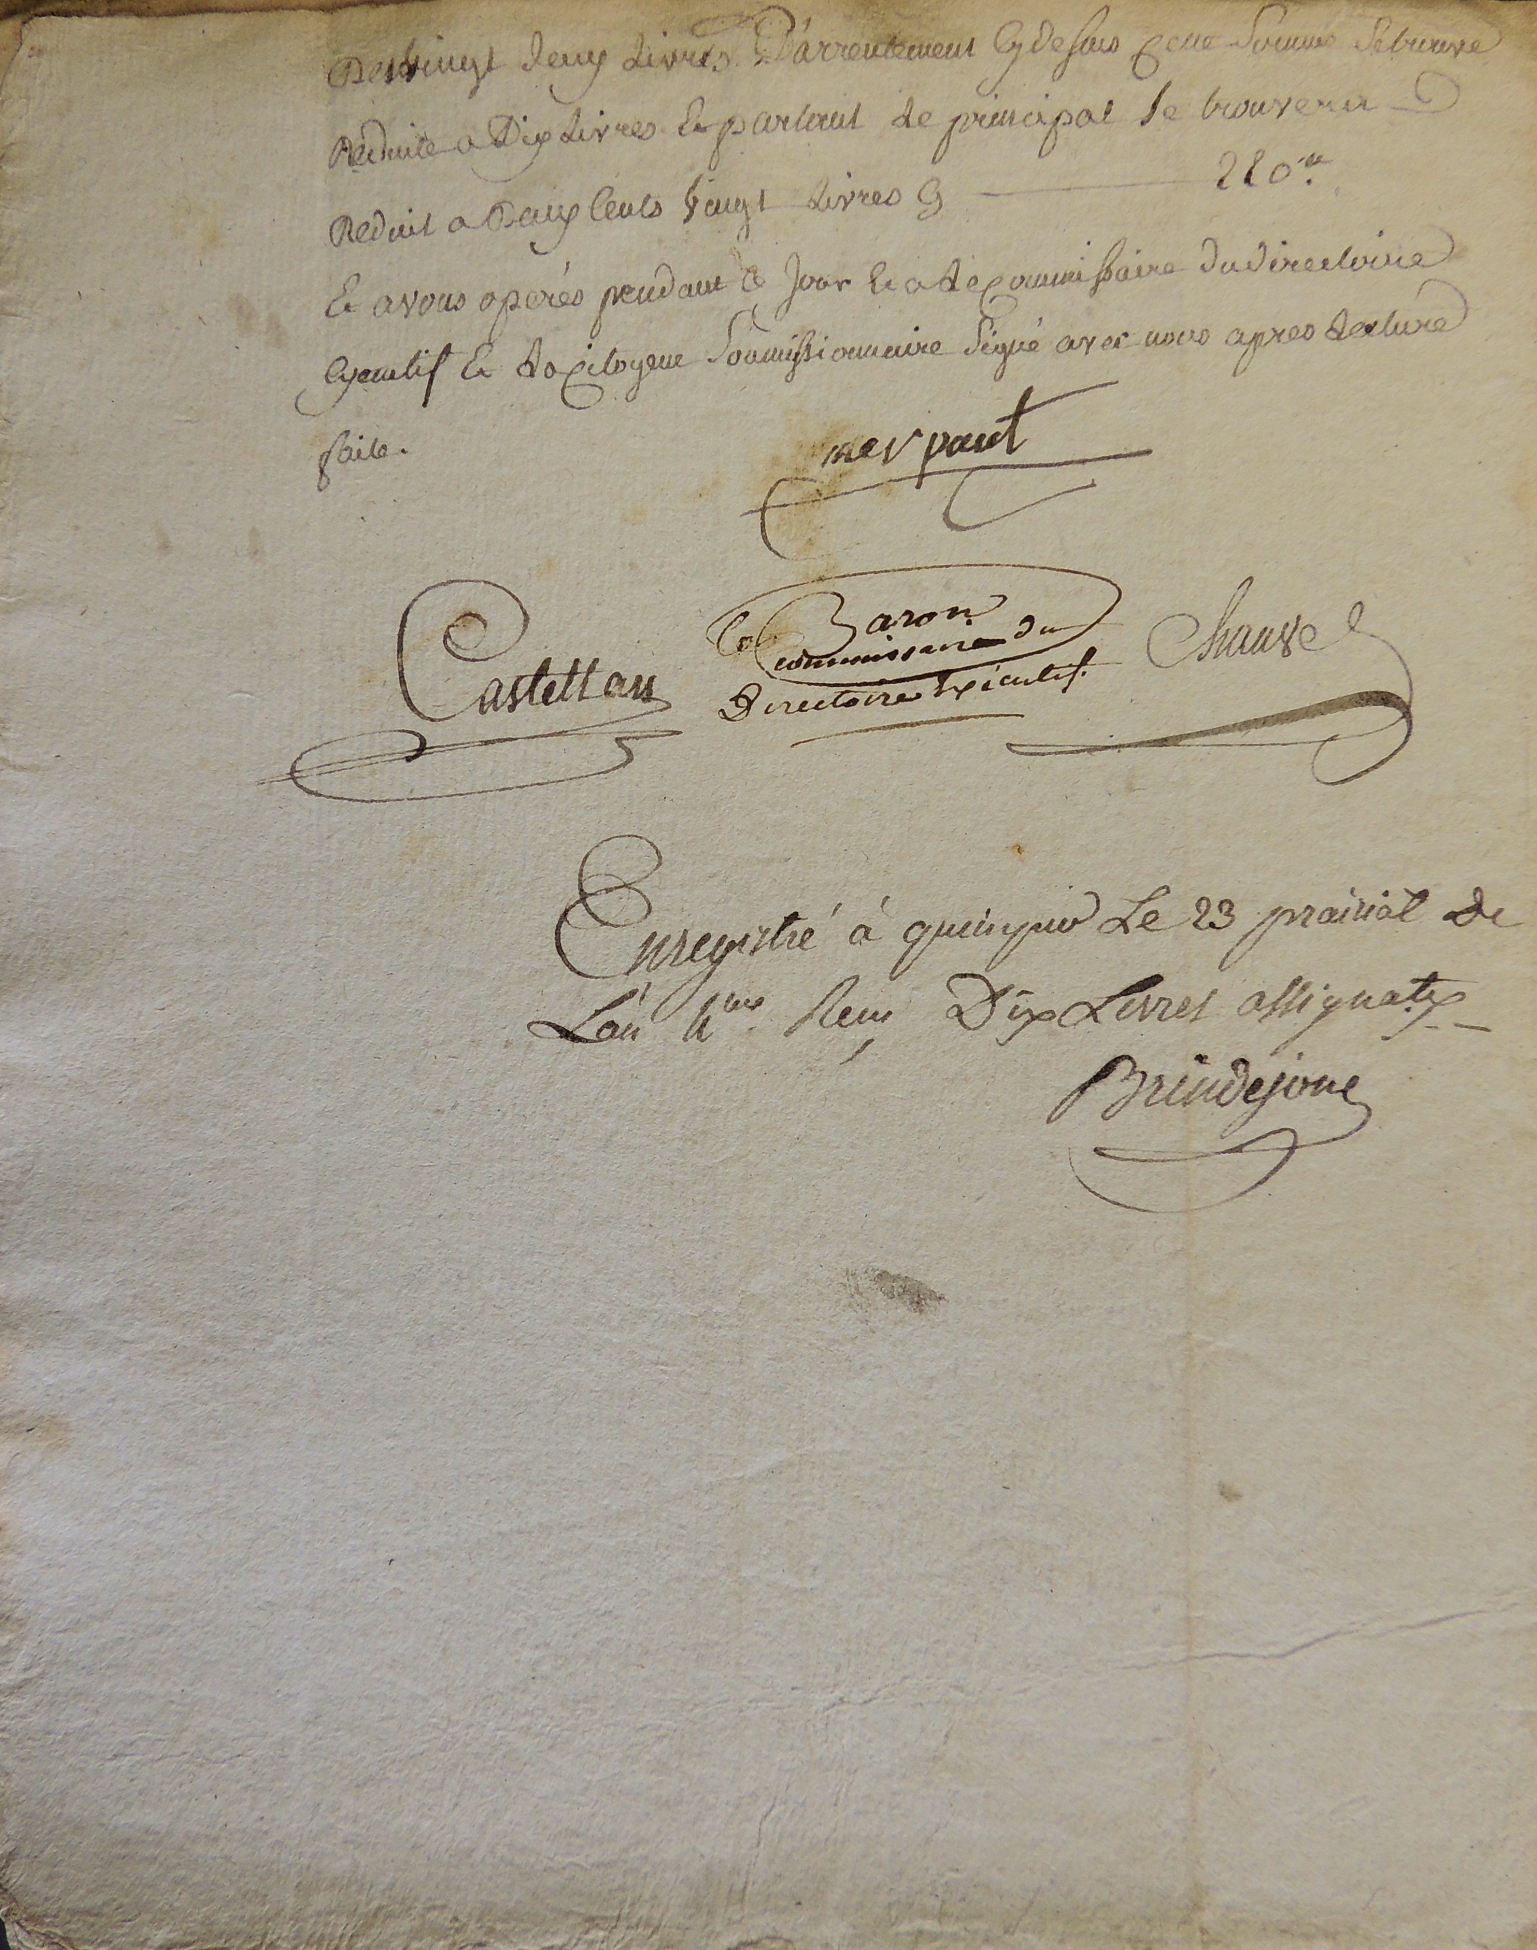 Des vingt deux Livres D'arrentement Cy desus cette Somme Se trouve
Reduite a Dix Livres Et partant Le principal Se trouvera
Reduit a Deux Cents Vingt Livres Cy 220ᵗᵗ
Et avons operés pendant Ce Jour Et a Le Commissaire du directoire
Executif Et La Citoyene Soumissionnaire Signé avec nous apres Lecture
faite.
Castellan
Le Baron
commissaire du
Directoire Executif.
Enregistré à quimper Le 23 prairial de
L'an 4me Reçu Dix Livres assignats
Brindejonc